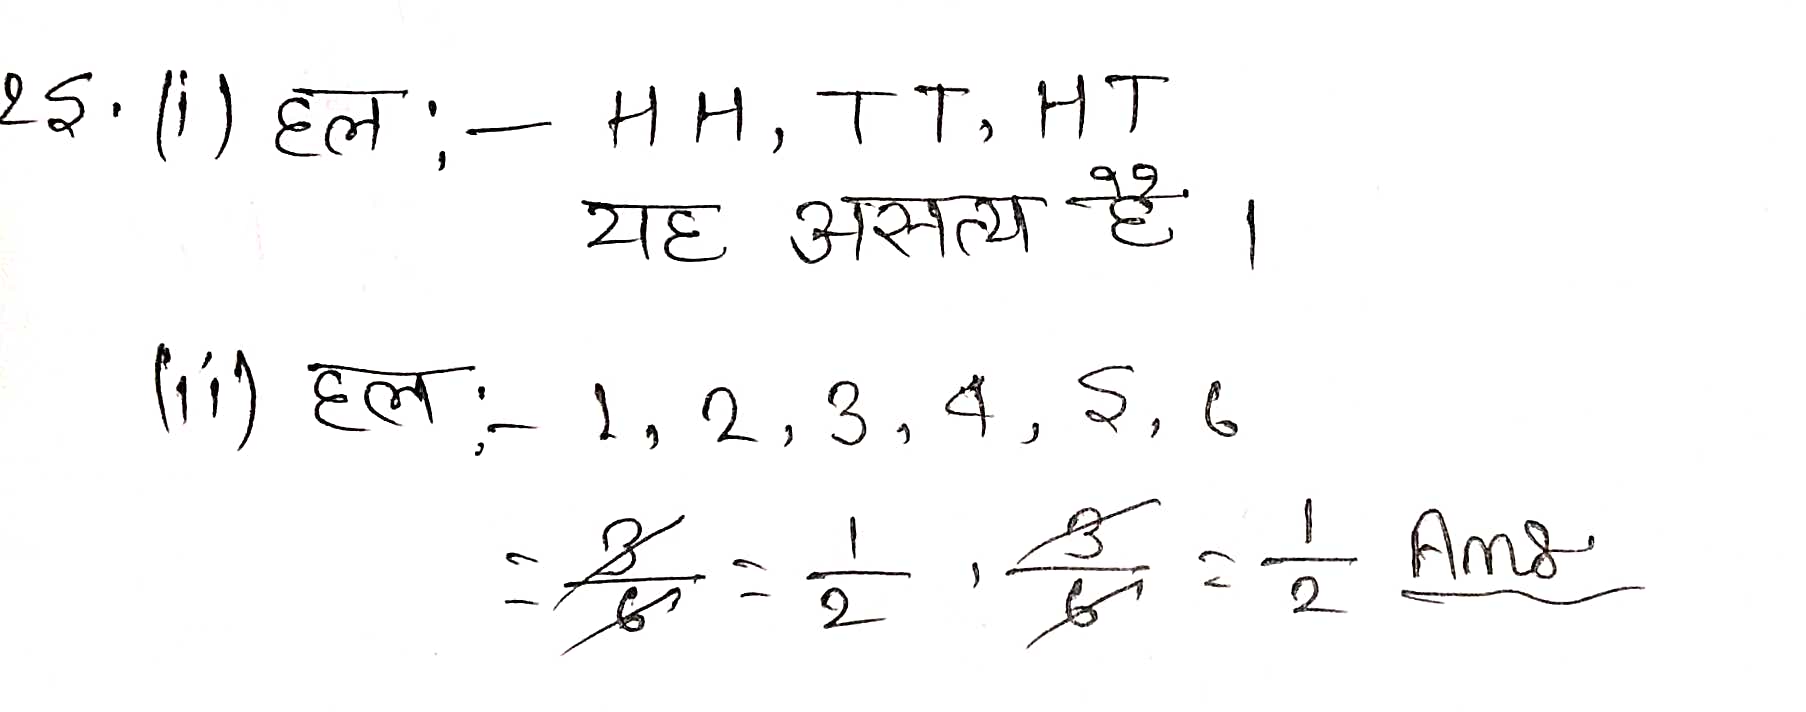 25. (i) हल :- HH, TT, HT
यह असत्य है ।
(ii) हल :- 1, 2, 3, 4, 5, 6
= 3/6 = 1/2 , 3/6 = 1/2 Ans